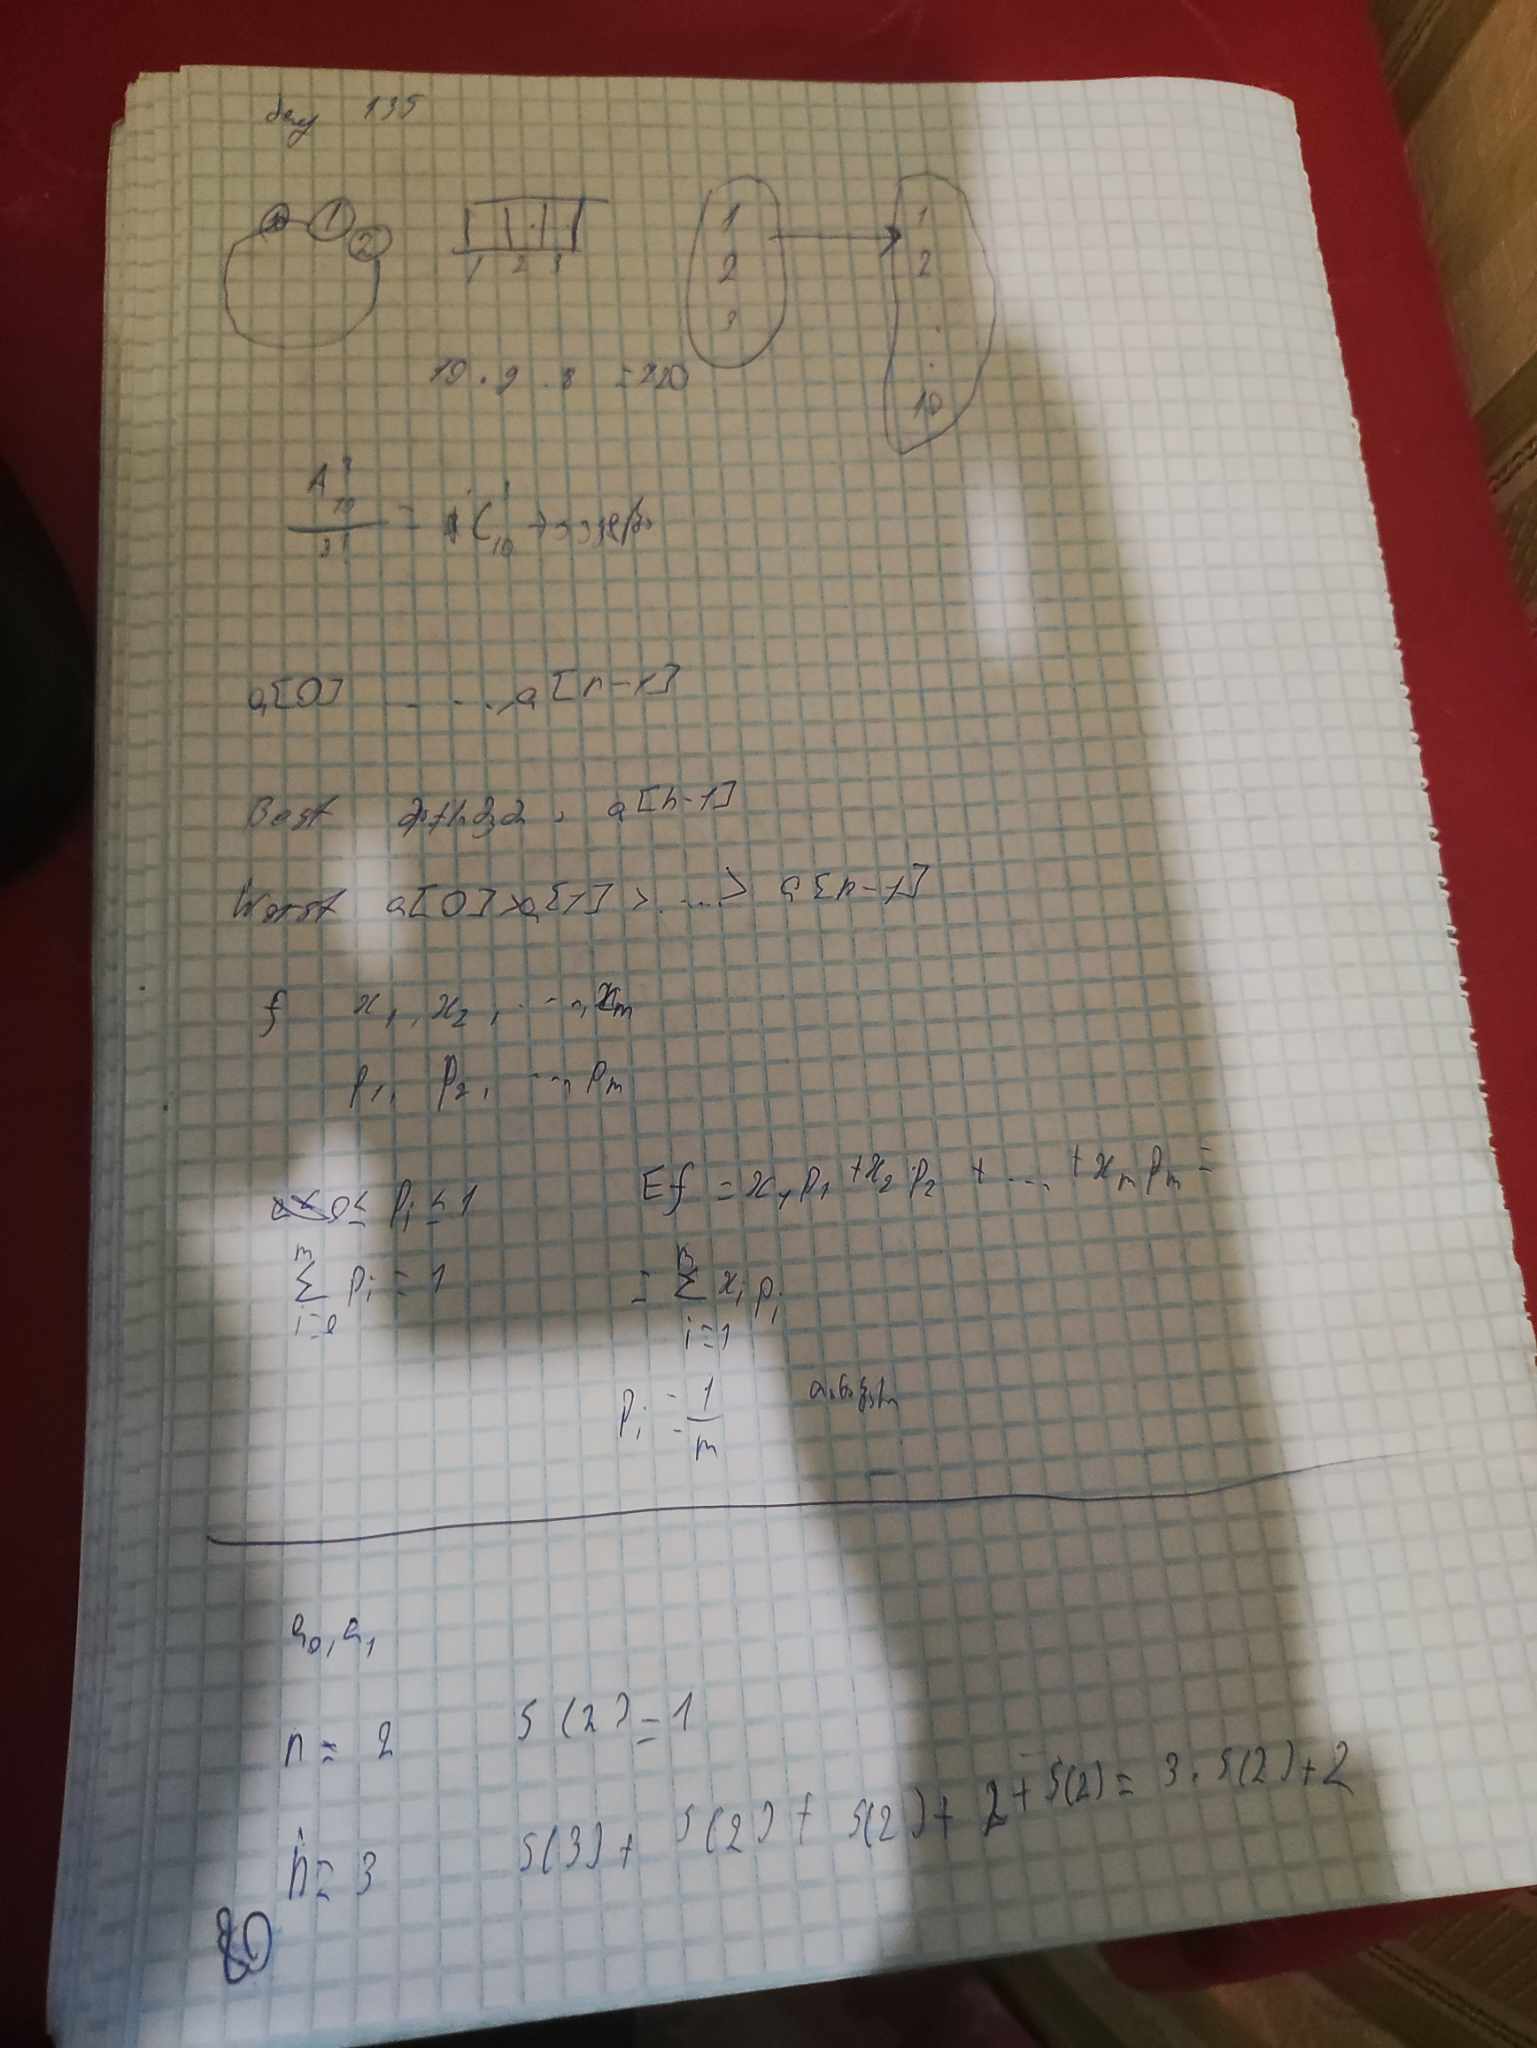 day 135
1 2
1 2 3
1
2
3
1
2
.
.
10
10 · 9 · 8 = 720
A³₁₀
3!
= C³₁₀
a[0] ...., a[n-1]
Best a[n-1]
Worst a[0] > a[1] > .... > a[n-1]
f x₁, x₂, ..., xₘ
p₁, p₂, ..., pₘ
0 ≤ pᵢ ≤ 1 Ef = x₁p₁ + x₂p₂ + ... + xₘpₘ =
m
Σ pᵢ = 1
i=0
m
= Σ xᵢ pᵢ
i=1
pᵢ = 1/m
a₀, a₁
n = 2 S(2) = 1
n = 3 S(3) + S(2) + S(2) + 2 + S(2) = 3 · S(2) + 2